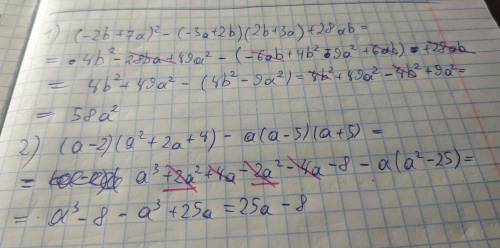 1) (-2b+7a)² - (-3a+2b)(2b+3a)+28ab=
= 4b² - 28ba + 49a² - (-6ab+4b² - 9a² + 6ab) + 28ab
= 4b² + 49a² - (4b² - 9a²) = 4b² + 49a² - 4b² + 9a² =
= 58a²
2) (a-2)(a²+2a+4) - a(a-5)(a+5) =
= a³ + 2a² + 4a - 2a² - 4a - 8 - a(a² - 25) =
= a³ - 8 - a³ + 25a = 25a - 8